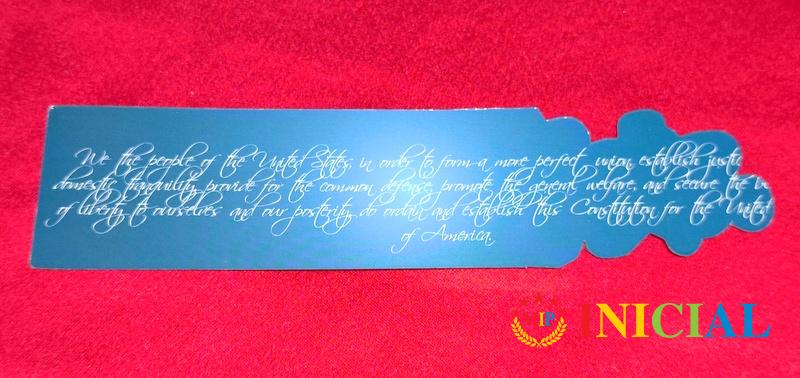 We the people of the United States, in order to form a more perfect union, establish justic
domestic tranquility, provide for the common defense, promote the general welfare, and secure the
of liberty to ourselves and our posterity, do ordain and establish this Constitution for the United
of America.
IP INICIAL